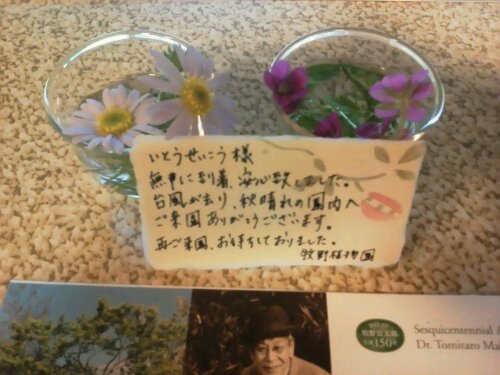 いとうせいこう様
無事に到着、安心致しました。
台風が去り、秋晴れの園内へ
ご来園ありがとうございます。
再ご来園、お待ちしておりました。
牧野植物園
牧野富太郎
生誕150年
Sesquicentennial
Dr. Tomitaro Ma